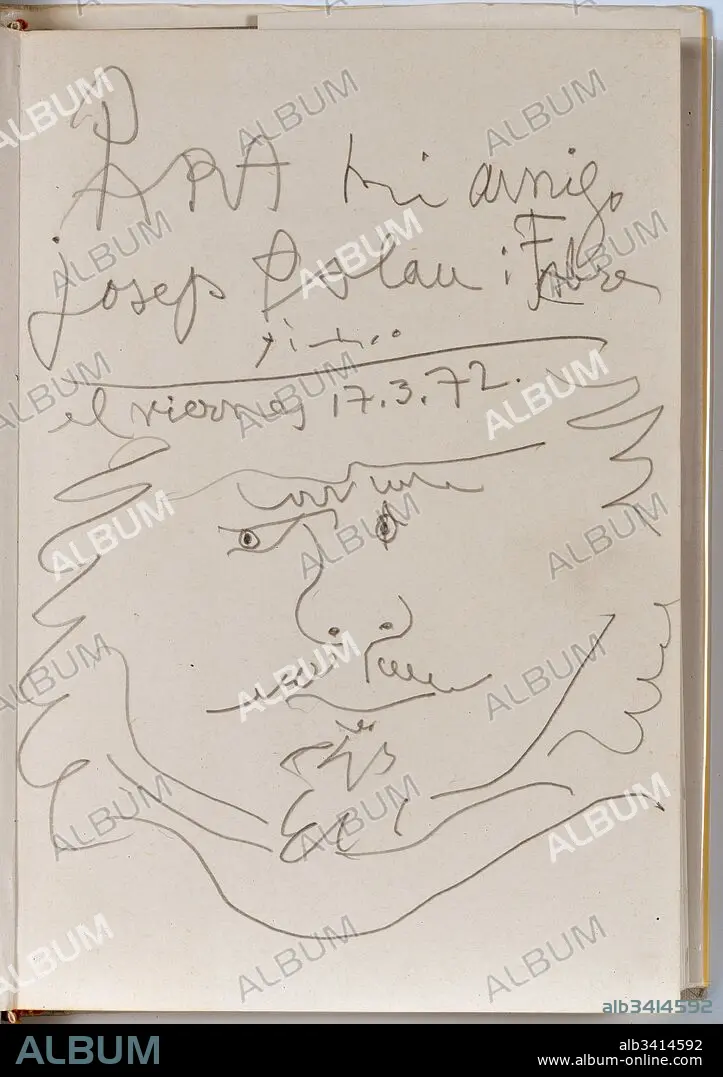 PARA mi amigo
josep Palau i Fabre
Picasso
el viernes 17.3.72.
ALBUM
alb3414592
ALBUM
alb3414592
www.album-online.com